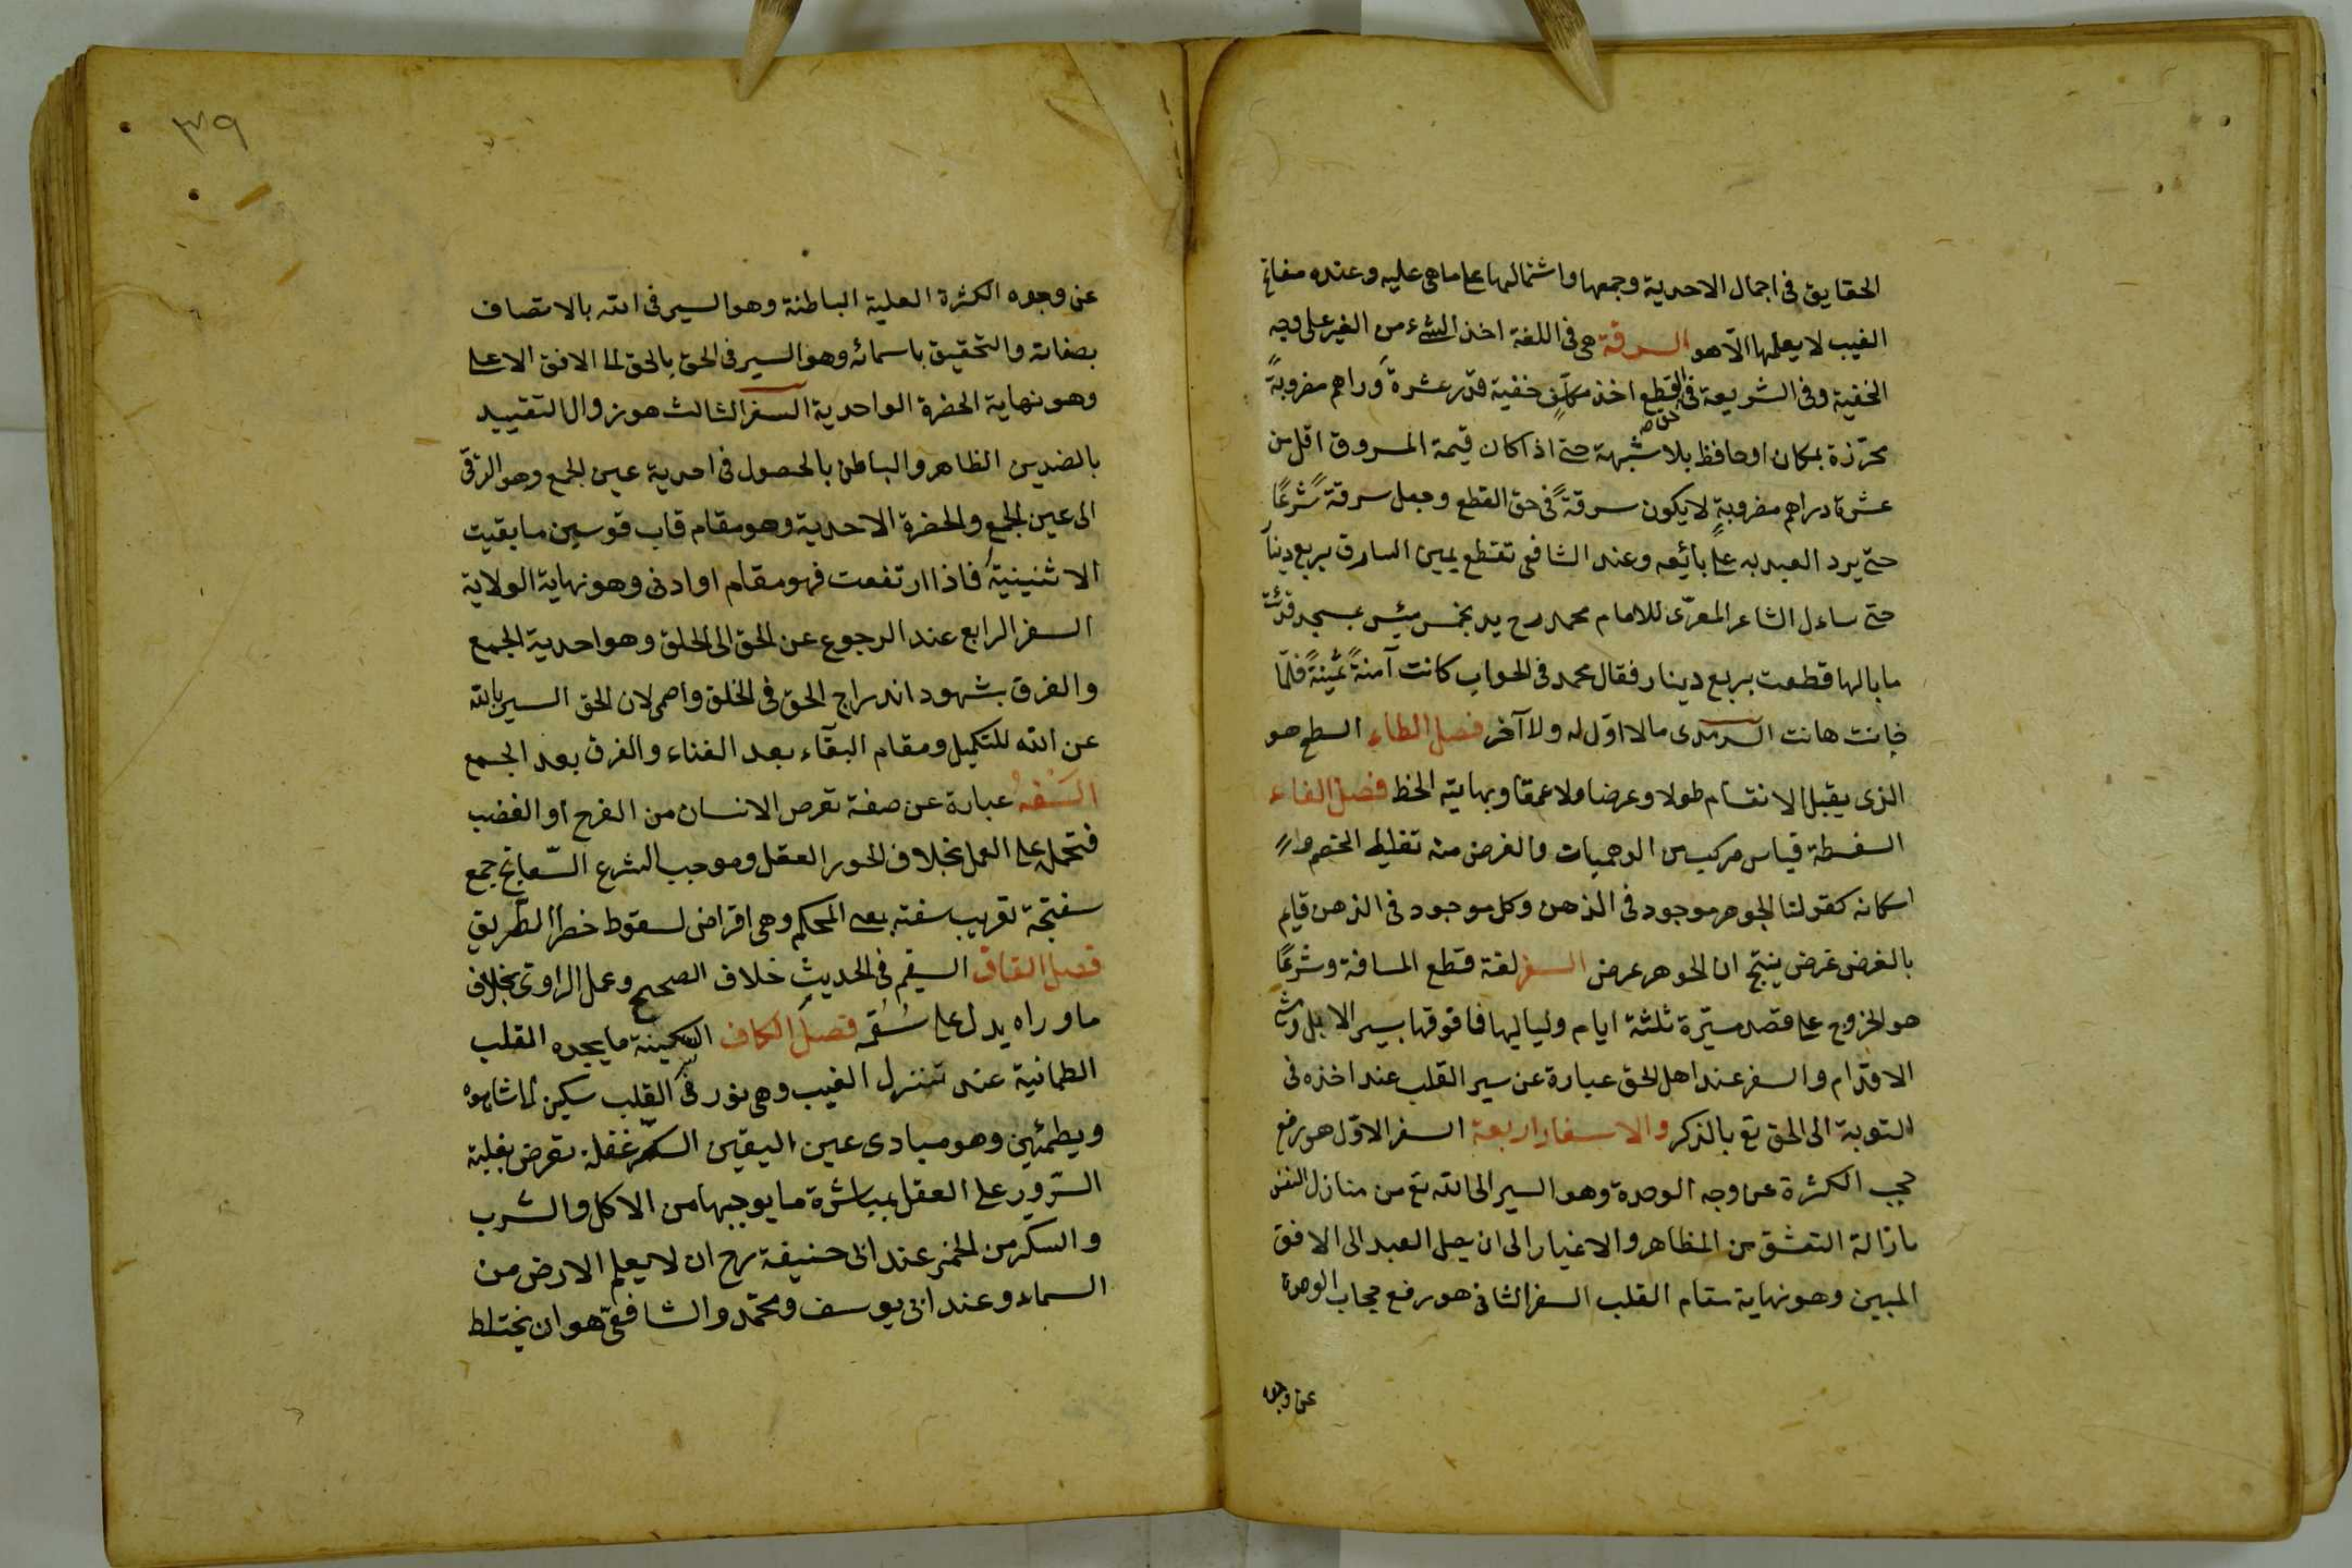 الحقايق فى اجمال الاحدية وجمعها واشتمالها على ماهى عليه وعنده مفاتح
الغيب لا يعلمها الا هو السرقة هى فى اللغة اخذ الشىء من الغير على وجه
الخفية وفى الشريعة فى القطع اخذ مكلف خفية قدر عشرة دراهم مضروبةً
محرّزة بمكان او حافظ بلا شبهة حتى اذا كان قيمة المسروق اقل من
عشرة دراهم مضروبةٍ لا يكون سرقةً فى حق القطع وجعل سرقةً شرعًا
حتى يرد العبد به على بائعه وعند الشافعى تقطع يمين السارق بربع دينار
حتى ساءل الشاعر المعرّى للامام محمد رح يد بخمس مئين عسجد فديت
ما بالها قطعت بربع دينار فقال محمد فى الجواب كانت آمنةً ثمينةً فلمّا
خانت هانت السرمدى مالا اوّل له ولا آخر فصل الطاء السطح هو
الذى يقبل الانقسام طولا وعرضا ولا عمقا ونهايته الخط فصل الفاء
السفسطة قياس مركب من الوهميات والغرض منه تغليط الخصم و
اسكاته كقولنا الجوهر موجود فى الذهن وكل موجود فى الذهن قايم
بالغرض عرض ينتج ان الجوهر عرض السفر لغة قطع المسافة وشرعًا
هو الخروج على قصد مسيرة ثلثة ايام ولياليها فما فوقها بسير الابل ومشى
الاقدام والسفر عند اهل الحق عبارة عن سير القلب عند اخذه فى
التوبة الى الحق تع بالذكر والاسفار اربعة السفر الاوّل هو رفع
حجب الكثرة عن وجه الوحدة وهو السير الى الله تع من منازل النفس
بازالة التعشق من المظاهر والاغيار الى ان يصل العبد الى الافق
المبين وهو نهاية مقام القلب السفر الثانى هو رفع حجاب الوحدة
عن وجوه
٣٩
عن وجوه الكثرة العلية الباطنة وهو السير فى الله بالاتصاف
بصفاته والتحقيق باسمائه وهو السير فى الحق بالحق الى الافق الاعلى
وهو نهاية الحضرة الواحدية السفر الثالث هو زوال التقييد
بالضدين الظاهر والباطن بالحصول فى احدية عين الجمع وهو الترقى
الى عين الجمع والحضرة الاحدية وهو مقام قاب قوسين ما بقيت
الاثنينية فاذا ارتفعت فهو مقام او ادنى وهو نهاية الولاية
السفر الرابع عند الرجوع عن الحق الى الخلق وهو احدية الجمع
والفرق بشهود اندراج الحق فى الخلق واضمحلال الحق السير بالله
عن الله للتكميل ومقام البقاء بعد الفناء والفرق بعد الجمع
السَفهُ عبارة عن صفة تعرض الانسان من الفرح او الغضب
فتحمله على العمل بخلاف طور العقل وموجب الشرع السّفاتج جمع
سفتجة تعريب سفته بمعنى المحكم وهى اقراض لسقوط خطر الطريق
فصل القاف السقيم فى الحديث خلاف الصحيح وعمل الراوى بخلاف
ما وراه يدل على سُقمه فصل الكاف السكينة ما يجده القلب
الطمانية عند تنزل الغيب وهى نور فى القلب سكين الى شاهده
ويطمئين وهو مبادى عين اليقين السكر غفلة تعرض بغلبة
السّرور على العقل بمباشرة ما يوجبها من الاكل والشرب
والسكر من الخمر عند ابى حنيفة رح ان لا يعلم الارض من
السماء وعند ابى يوسف ومحمّد والشافعى هو ان يختلط